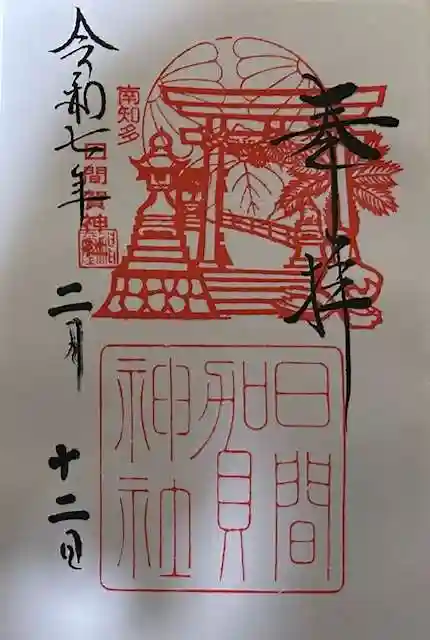 奉拝
日間
賀
神社
南知多
日間賀神社
令和七年
二月
十二日